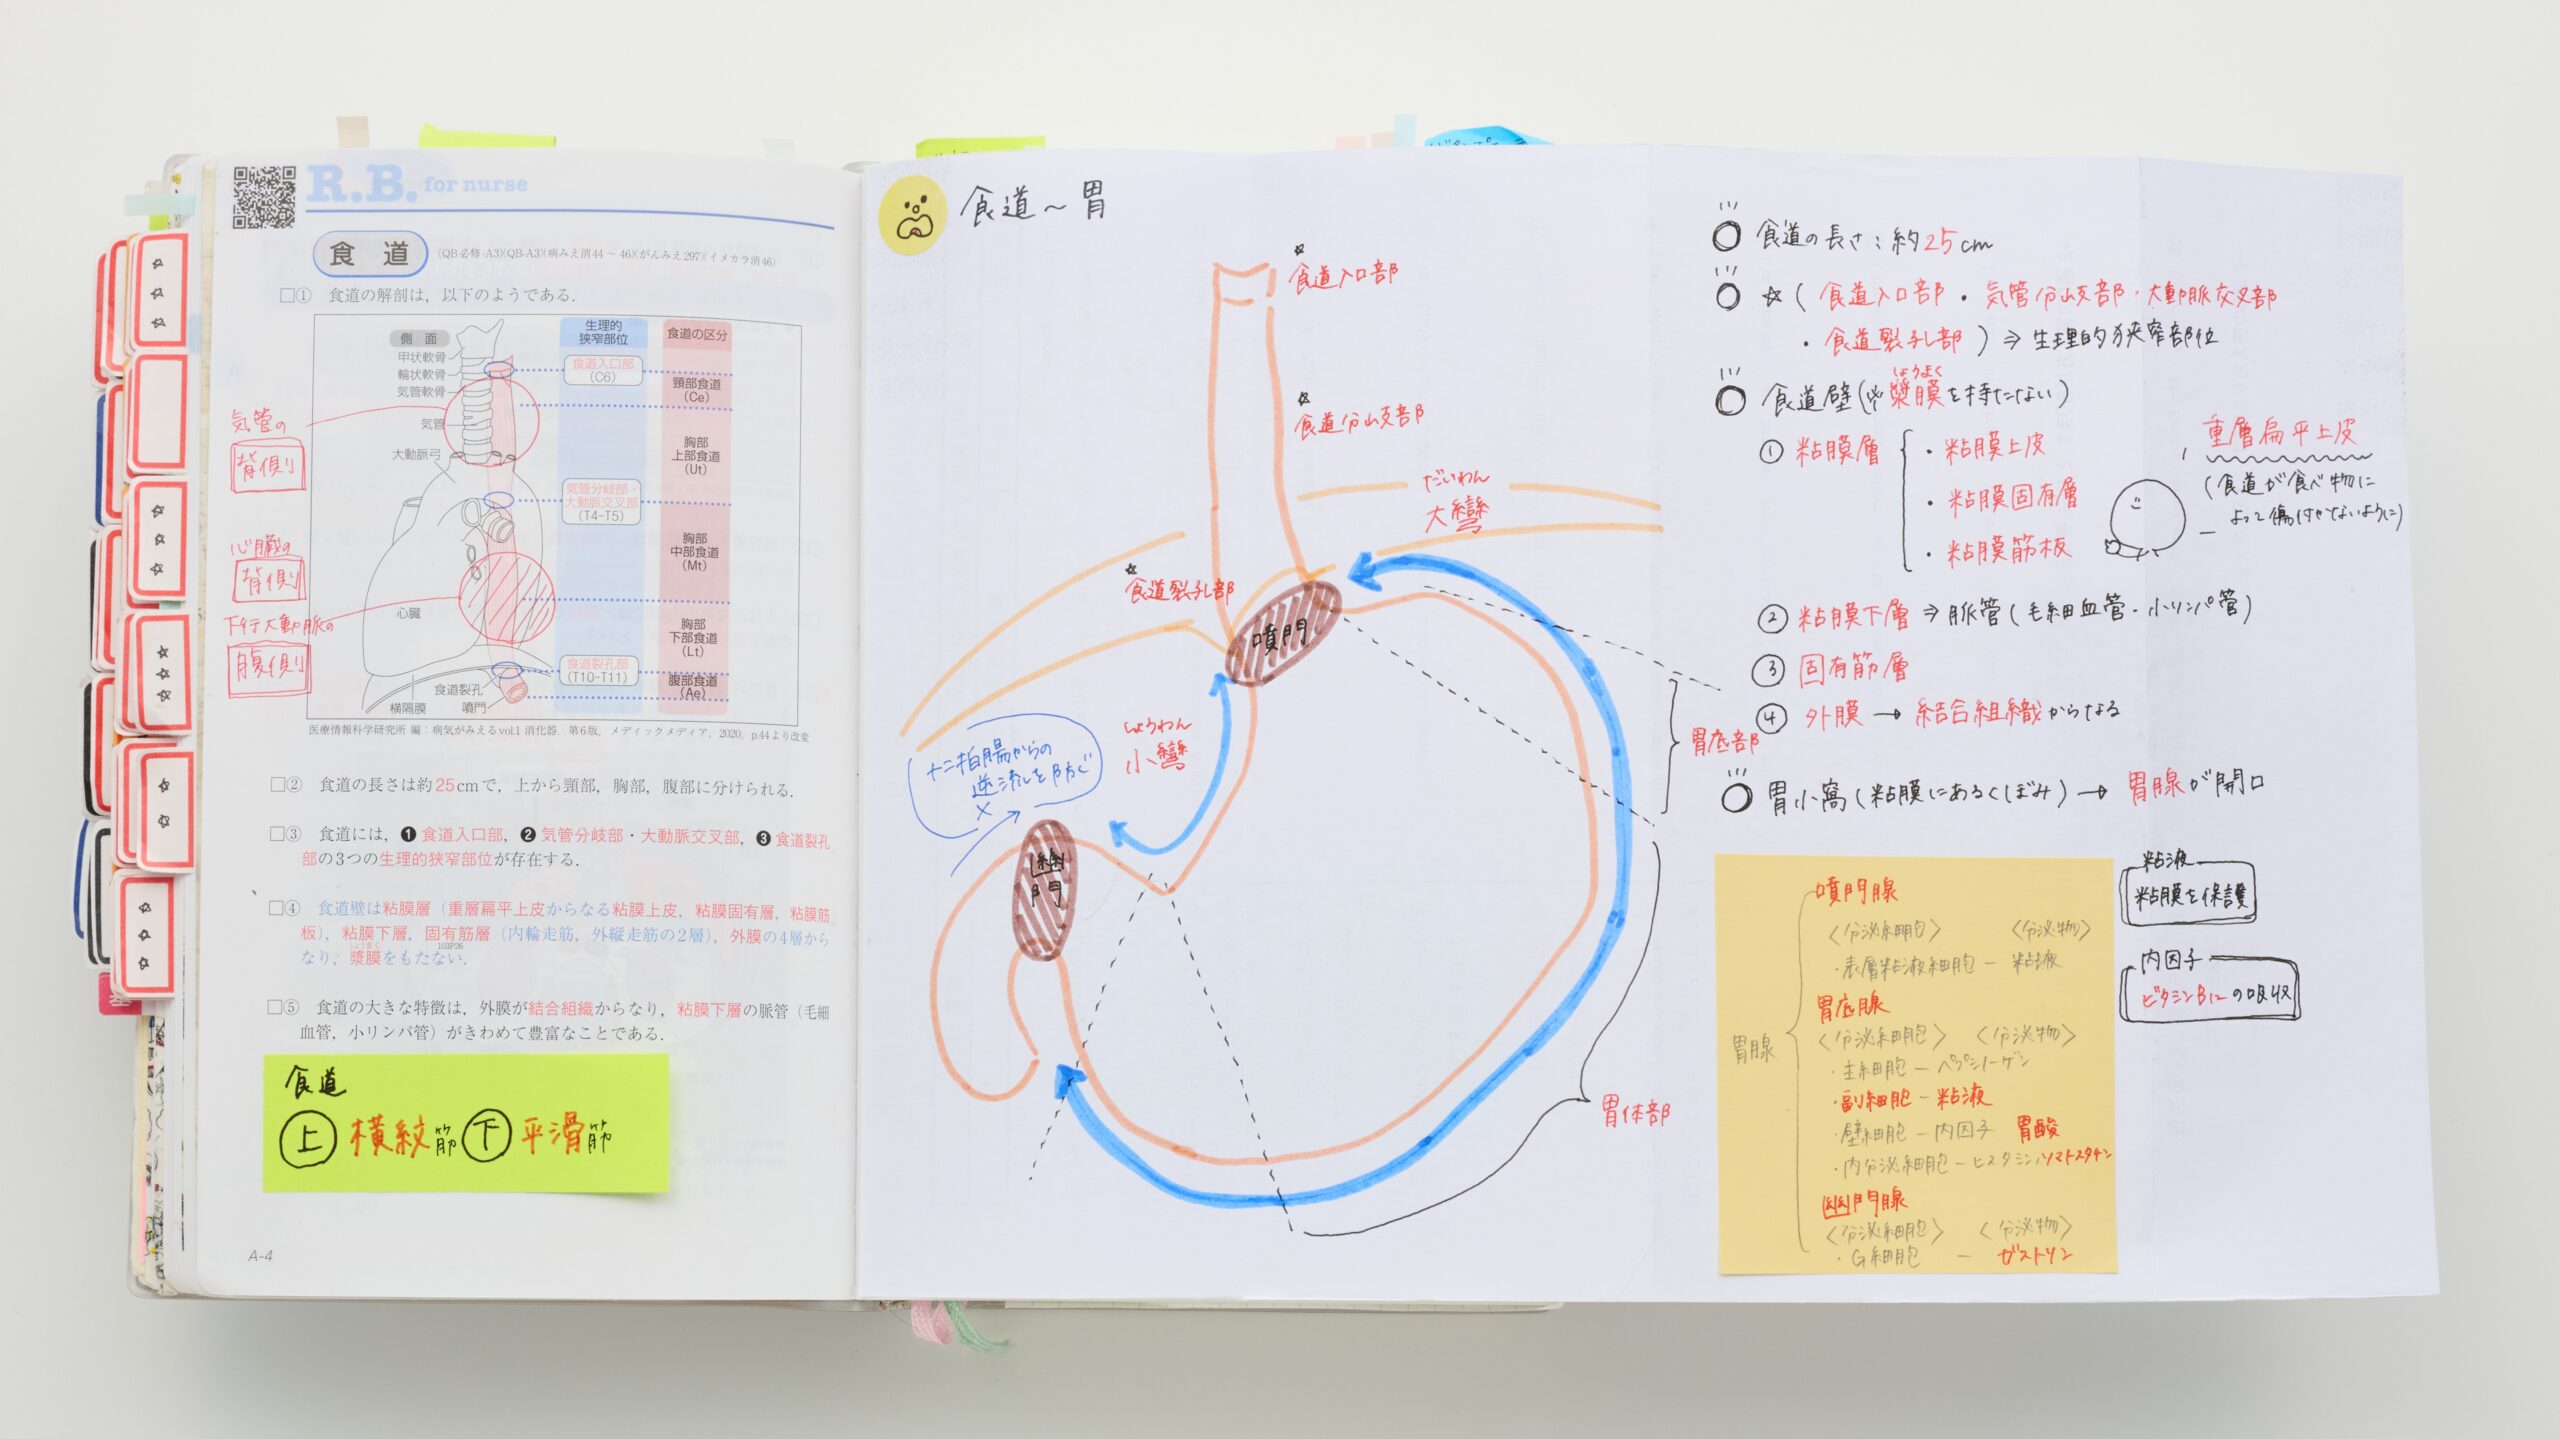 R.B. for nurse
食道
(QB必修-A3)(QB-A3)(病みえ消44～46)(がんみえ297)(イメカラ消46)
□① 食道の解剖は，以下のようである．
側面
生理的
狭窄部位
食道の区分
甲状軟骨
輪状軟骨
気管軟骨
気管
大動脈弓
心臓
食道裂孔
横隔膜
噴門
食道入口部
(C6)
気管分岐部・
大動脈交叉部
(T4-T5)
食道裂孔部
(T10-T11)
頸部食道
(Ce)
胸部
上部食道
(Ut)
胸部
中部食道
(Mt)
胸部
下部食道
(Lt)
腹部食道
(Ae)
気管の
背側
心臓の
背側
下行大動脈の
腹側
医療情報科学研究所 編：病気がみえるvol.1 消化器．第6版，メディックメディア，2020，p.44より改変
□② 食道の長さは約25cmで，上から頸部，胸部，腹部に分けられる．
□③ 食道には，❶食道入口部，❷気管分岐部・大動脈交叉部，❸食道裂孔
部の3つの生理的狭窄部位が存在する．
□④ 食道壁は粘膜層（重層扁平上皮からなる粘膜上皮，粘膜固有層，粘膜筋
板），粘膜下層，固有筋層（内輪走筋，外縦走筋の2層），外膜の4層から
しょうまく 103P26
なり，漿膜をもたない．
□⑤ 食道の大きな特徴は，外膜が結合組織からなり，粘膜下層の脈管（毛細
血管，小リンパ管）がきわめて豊富なことである．
食道
上 横紋筋 下 平滑筋
A-4
食道～胃
☆
食道入口部
☆
食道分岐部
だいわん
大彎
☆
食道裂孔部
噴門
しょうわん
小彎
十二指腸からの
逆流を防ぐ
×
幽門
胃底部
胃体部
○ 食道の長さ：約25cm
○ ☆(食道入口部・気管分岐部・大動脈交叉部
・食道裂孔部)⇒生理的狭窄部位
しょうまく
○ 食道壁(※漿膜を持たない)
① 粘膜層
・粘膜上皮
・粘膜固有層
・粘膜筋板
重層扁平上皮
(食道が食べ物に
よって傷付かないように)
② 粘膜下層⇒脈管(毛細血管・小リンパ管)
③ 固有筋層
④ 外膜→結合組織からなる
○ 胃小窩(粘膜にあるくぼみ)→胃腺が開口
胃腺
噴門腺
〈分泌細胞〉 〈分泌物〉
・表層粘液細胞－粘液
胃底腺
〈分泌細胞〉 〈分泌物〉
・主細胞－ペプシノーゲン
・副細胞－粘液
・壁細胞－内因子 胃酸
・内分泌細胞－ヒスタミン，ソマトスタチン
幽門腺
〈分泌細胞〉 〈分泌物〉
・G細胞 － ガストリン
粘液
粘膜を保護
内因子
ビタミンB12の吸収